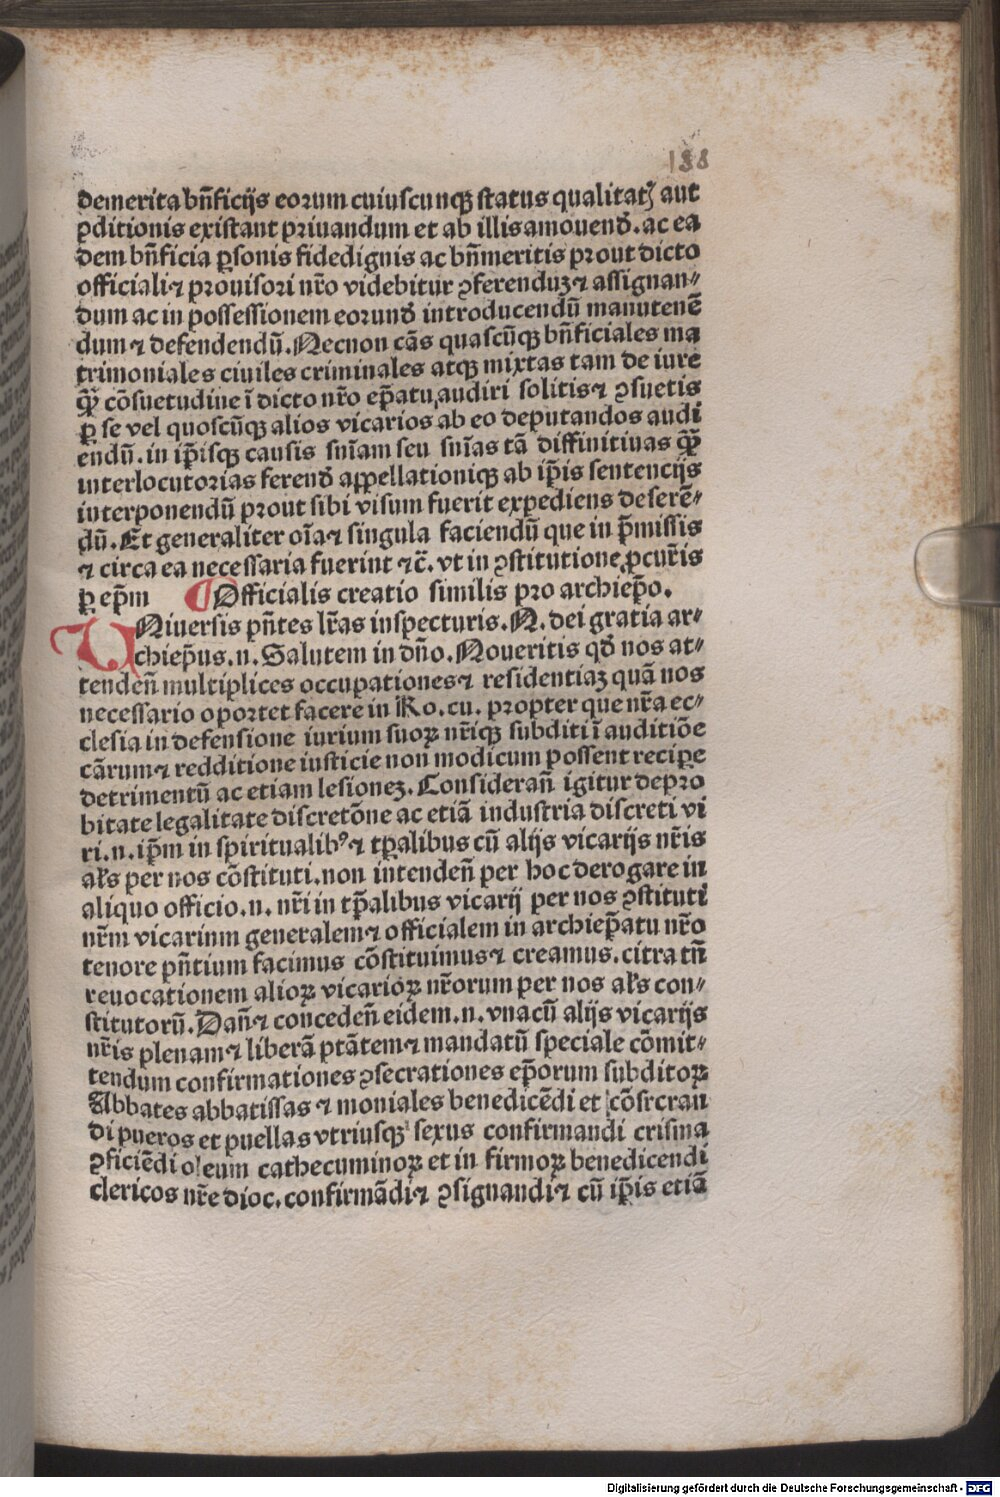 188
demerita bn̄ficijs eorum cuiuscunqꝫ status qualitatꝭ aut
ꝓditionis existant priuandum et ab illis amouend̄. ac ea
dem bn̄ficia ꝑsonis fidedignis ac bn̄meritis prout dicto
officiali ⁊ prouisori nr̄o videbitur ꝯferenduꝫ ⁊ assignan⸗
dum ac in possessionem eorund̄ introducendū manutenē
dum ⁊ defendendū. Necnon cās quascūqꝫ bn̄ficiales ma
trimoniales ciuiles criminales atqꝫ mixtas tam de iure
qꝫ̄ cōsuetudine ī dicto nr̄o ep̄atu audiri solitis ⁊ ꝯsuetis
ꝑ se vel quoscūqꝫ alios vicarios ab eo deputandos audi
endū. in ip̄isqꝫ causis sn̄iam seu sn̄ias tā diffinitiuas qꝫ̄
interlocutorias ferend̄ appellationiqꝫ ab ip̄is sentencijs
interponendū prout sibi visum fuerit expediens deferē⸗
dū. Et generaliter oīa ⁊ singula faciendū que in p̄missis
⁊ circa ea necessaria fuerint ⁊c̄. vt in ꝯstitutione ꝓcur̄is
ꝑ ep̄m ¶ Officialis creatio similis pro archiep̄o.
UNiuersis pn̄tes lr̄as inspecturis. N. dei gratia ar⸗
chiep̄us. n. Salutem in dn̄o. Noueritis qd̄ nos at⸗
tenden̄ multiplices occupationes ⁊ residentiaꝫ quā nos
necessario oportet facere in Ro. cu. propter que nr̄a ec⸗
clesia in defensione iurium suoꝝ nr̄iqꝫ subditi ī auditiōe
cārum ⁊ redditione iusticie non modicum possent recipe
detrimentū ac etiam lesioneꝫ. Consideran̄ igitur de pro
bitate legalitate discretōne ac etiā industria discreti vi
ri. n. ip̄m in spiritualibꝰ ⁊ tp̄alibus cū alijs vicarijs nr̄is
al̄s per nos cōstituti. non intenden̄ per hoc derogare in
aliquo officio. n. nr̄i in tp̄alibus vicarij per nos ꝯstituti
nr̄m vicarium generalem ⁊ officialem in archiep̄atu nr̄o
tenore pn̄tium facimus cōstituimus ⁊ creamus. citra tn̄
reuocationem alioꝝ vicarioꝝ nr̄orum per nos al̄s con⸗
stitutorū. Dan̄ ⁊ conceden̄ eidem. n. vnacū alijs vicarijs
nr̄is plenam ⁊ liberā ptātem ⁊ mandatū speciale cōmit⸗
tendum confirmationes ꝯsecrationes ep̄orum subditoꝝ
Abbates abbatissas ⁊ moniales benedicēdi et cōsecran
di pueros et puellas vtriusqꝫ sexus confirmandi crisma
ꝯficiēdi oleum cathecuminoꝝ et in firmoꝝ benedicendi
clericos nr̄e dioc. confirmādi ⁊ ꝯsignandi ⁊ cū ip̄is etiā
Digitalisierung gefördert durch die Deutsche Forschungsgemeinschaft - DFG